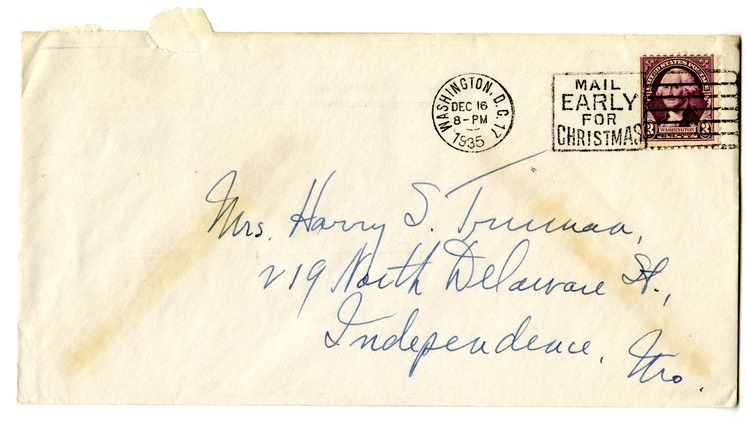 WASHINGTON, D.C. 17
DEC 16
8-PM
1935
MAIL
EARLY
FOR
CHRISTMAS
UNITED STATES POSTAGE
3 WASHINGTON 3
Mrs. Harry S. Truman,
219 North Delaware St.,
Independence, Mo.